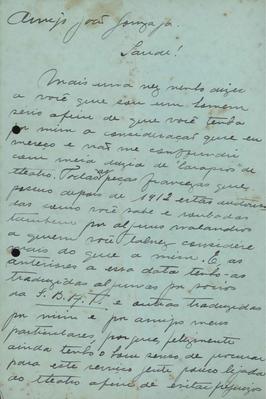 Amigo João Gonzaga.
Saude!
Mais uma vez venho dizer
a você que sou um homem
serio afim de que você tenha
por mim a consideração que eu
mereço e não me confundir
com meia duzia de larapios de
theatro. Todas as peças francezas que
passou depois de 1912 estão
las como você sabe e roubadas
tambem por alguns malandros
a quem você talvez considere
mais do que a mim. E as
anteriores a essa data tenho-as
traduzidas algumas por socios
da S.B.A.T. e outras traduzidas
por mim e por amigos meus
particulares, porque, felizmente
ainda tenho o bom senso de procurar
para este serviço gente pouco lejada
do theatro afim de evitar prejuizos